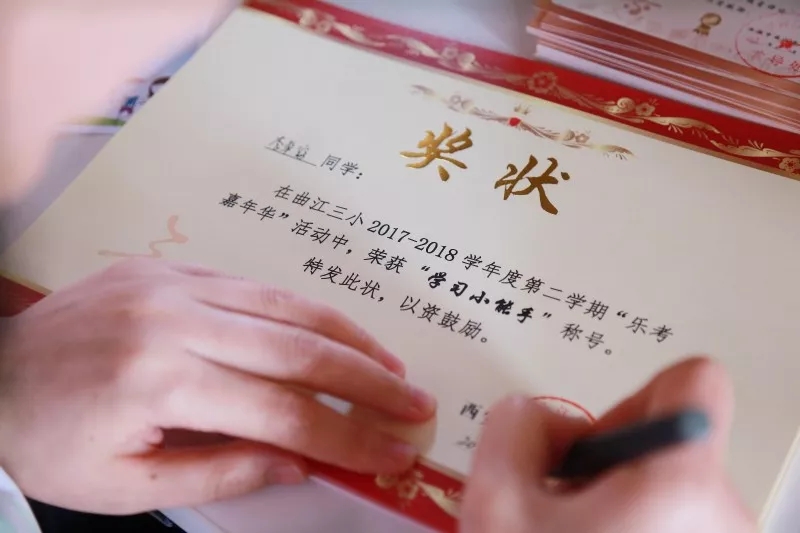 奖状
同学：
在曲江三小2017-2018学年度第二学期“乐考
嘉年华”活动中，荣获“学习小能手”称号。
特发此状，以资鼓励。
西